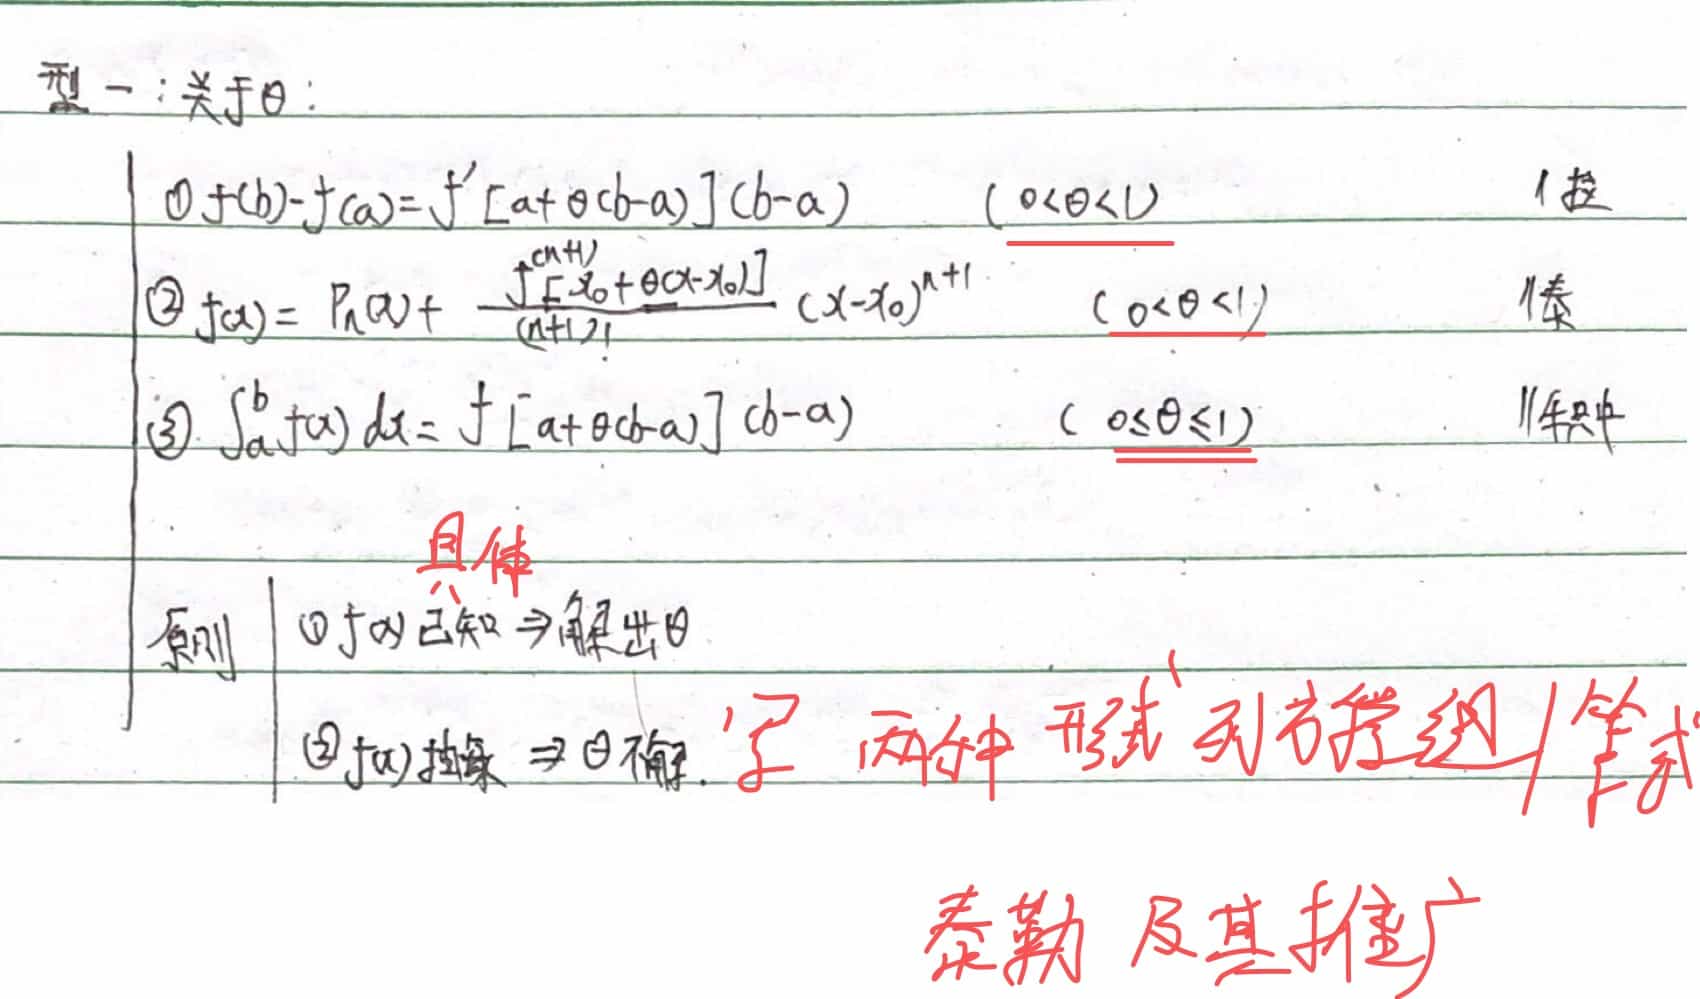 型一:关于θ:
① f(b)-f(a)=f'[a+θ(b-a)](b-a) (0<θ<1) 拉
② f(x)= Pn(x)+ f^(n+1)[x₀+θ(x-x₀)]/(n+1)! (x-x₀)^(n+1) (0<θ<1) 泰
③ ∫_a^b f(x)dx= f[a+θ(b-a)](b-a) (0≤θ≤1) 积中
具体
原则 ① f(x)已知⇒解出θ
② f(x)抽象 ⇒ θ不解. 写 两种 形式 列方程组/等式
泰勒 及其推广